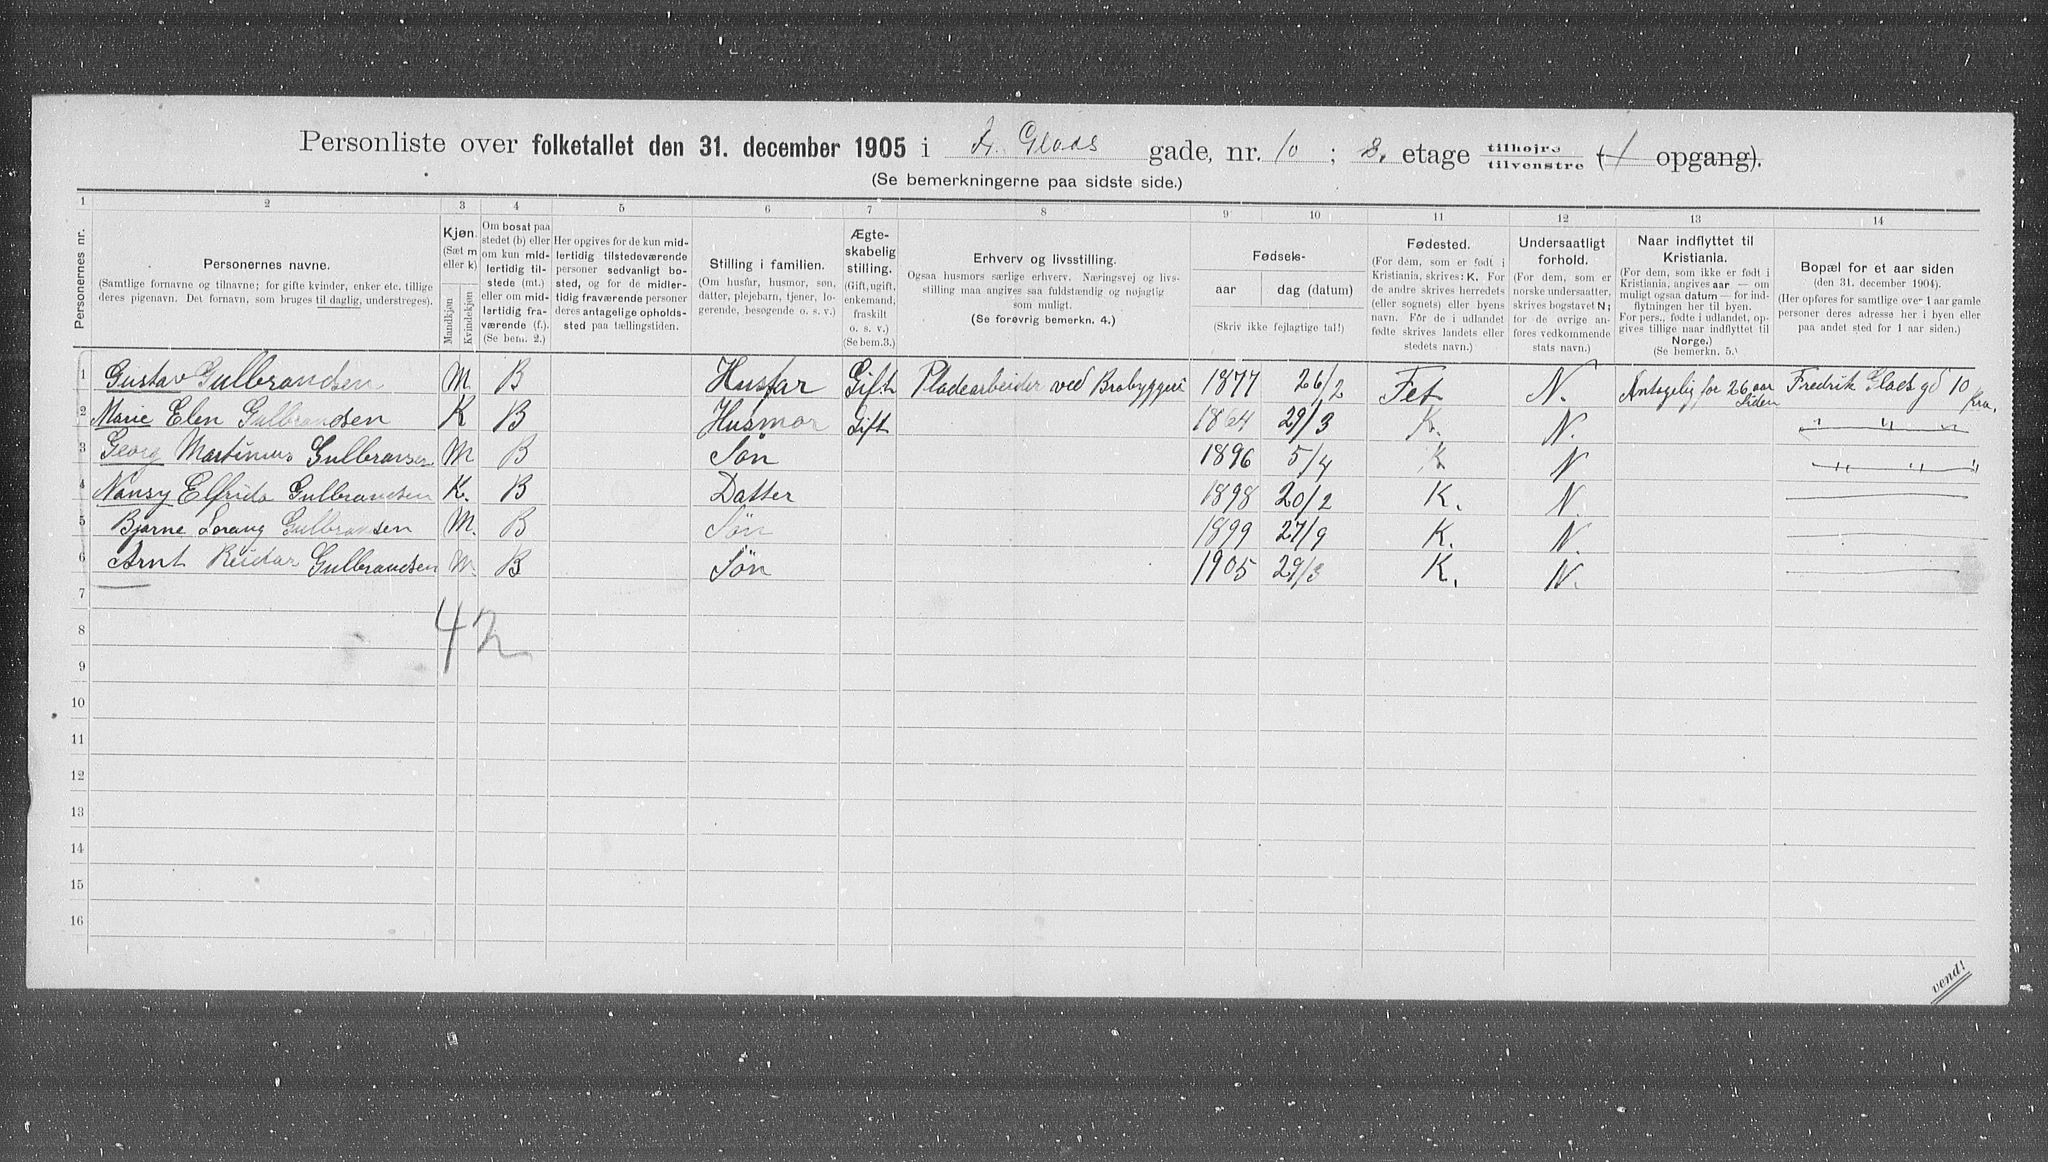 Personliste over folketallet den 31. december 1905 i Fr. Glads gade, nr. 10 ; 3. etage tilhøjre tilvenstre (1 opgang).
(Se bemerkningerne paa sidste side.)
1 2 3 4 5 6 7 8 9 10 11 12 13 14
Personernes nr.
Personernes navne.
(Samtlige fornavne og tilnavne; for gifte kvinder, enker etc. tillige
deres pigenavn. Det fornavn, som bruges til daglig, understreges).
Kjøn.
(Sæt m
eller k)
Mandkjøn
Kvindekjøn
Om bosat paa
stedet (b) eller
om kun mid-
lertidig til-
stede (mt.)
eller om mid-
lertidig fra-
værende (f.).
(Se bem. 2.)
Her opgives for de kun mid-
lertidig tilstedeværende
personer sedvanligt bo-
sted, og for de midler-
tidig fraværende personer
deres antagelige opholds-
sted paa tællingstiden.
Stilling i familien.
(Om husfar, husmor, søn,
datter, plejebarn, tjener, lo-
gerende, besøgende o. s. v.)
Ægte-
skabelig
stilling.
(Gift, ugift,
enkemand,
fraskilt
o. s. v.)
(Se bem.3.)
Erhverv og livsstilling.
Ogsaa husmors særlige erhverv. Næringsvej og livs-
stilling maa angives saa fuldstændig og nøjagtig
som muligt.
(Se forøvrig bemerkn. 4.)
Fødsels-
aar dag (datum)
(Skriv ikke fejlagtige tal!)
Fødested.
(For dem, som er født i
Kristiania, skrives: K. For
de andre skrives herredets
(eller sognets) eller byens
navn. For de i udlandet
fødte skrives landets eller
stedets navn.)
Undersaatligt
forhold.
(For dem, som er
norske undersaatter,
skrives bogstavet N;
for de øvrige an-
føres vedkommende
stats navn.)
Naar indflyttet til
Kristiania.
(For dem, som ikke er født i
Kristiania, angives aar — om
muligt ogsaa datum — for ind-
flytningen her til byen.
For pers., fødte i udlandet, op-
gives tillige naar indflyttet til
Norge.)
(Se bemerkn. 5.)
Bopæl for et aar siden
(den 31. december 1904).
(Her opføres for samtlige over 1 aar gamle
personer deres adresse her i byen eller
paa andet sted for 1 aar siden.)
1 Gustav Gulbrandsen M. B Husfar Gift Pladearbeider ved Brobyggeri 1877 26/2 Fet N. Antagelig for 26 aar siden Fredrik Glads gd 10 Kra.
2 Marie Elen Gulbrandsen K B Husmor Gift 1864 29/3 K. N. " " "
3 Georg Martinius Gulbransen M B Søn 1896 5/4 K N " " "
4 Nansy Elfrida Gulbrandsen K. B Datter 1898 20/2 K. N.
5 Bjarne Lorang Gulbransen M. B Søn 1899 27/9 K. N.
6 Arnt Reidar Gulbrandsen M. B Søn 1905 29/3 K. N.
7
8
42
9
10
11
12
13
14
15
16
vend!